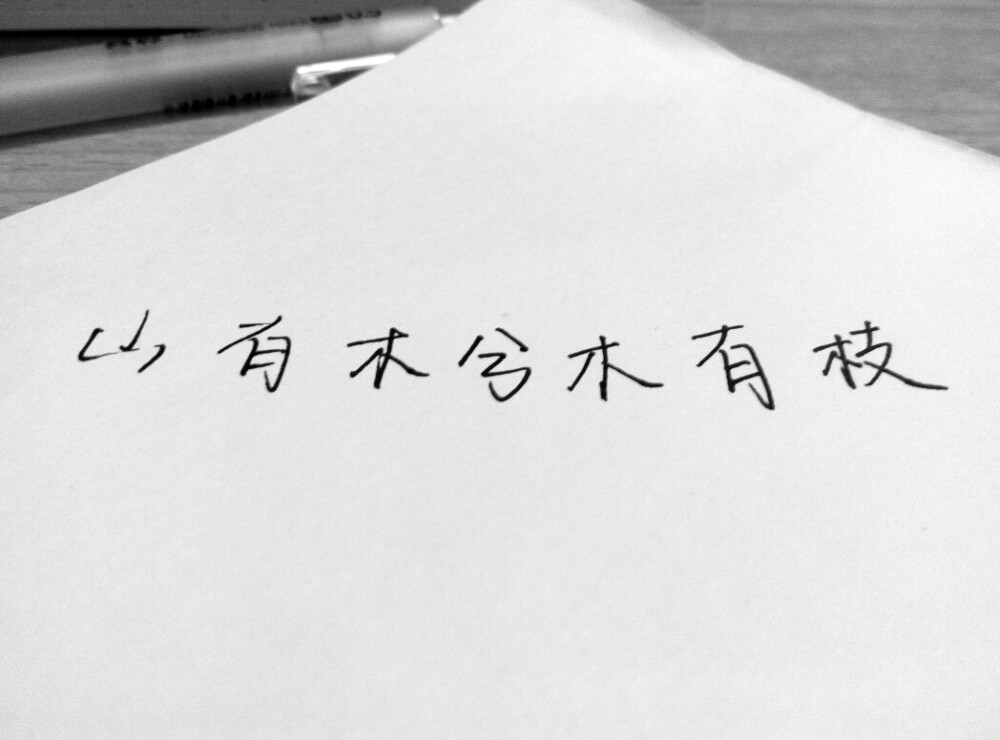 山有木兮木有枝